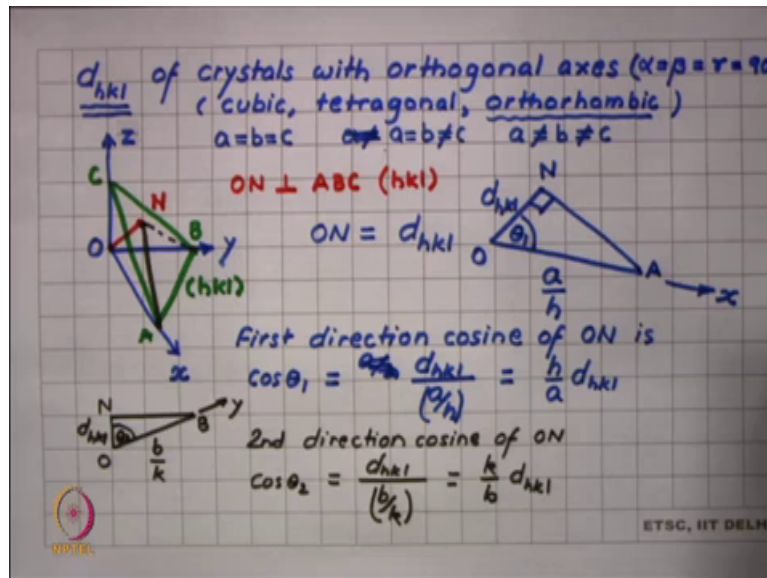 d_hkl of crystals with orthogonal axes (α=β=γ=90
( cubic, tetragonal, orthorhombic )
a=b=c a=b≠c a≠b≠c
z
C
N
O
B
y
(hkl)
A
x
ON ⊥ ABC (hkl)
ON = d_hkl
N
d_hkl
θ₁
O
a/h
A
x
First direction cosine of ON is
cosθ₁ = d_hkl/(a/h) = h/a d_hkl
N
d_hkl
O
b/k
B
y
2nd direction cosine of ON
cosθ₂ = d_hkl/(b/k) = k/b d_hkl
NPTEL
ETSC, IIT DELH